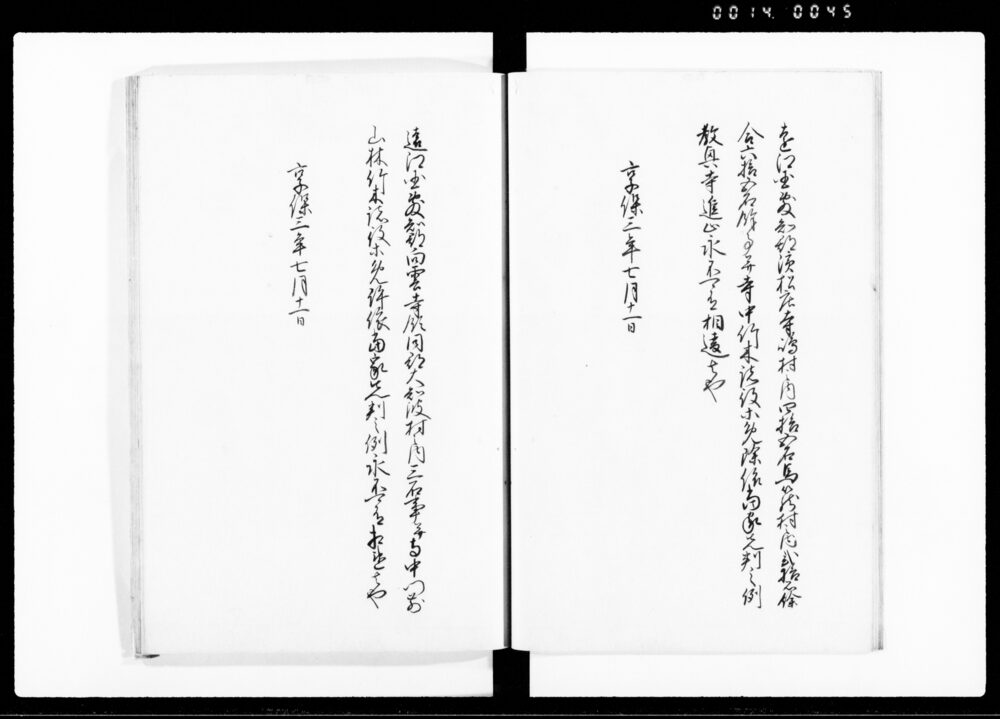 0014 0045
遠江国敷知郡濱松庄寺嶋村内四拾五石馬郡村内弐拾石餘
合六拾五石餘事并寺中竹木諸役等免除依当家先判之例
教興寺進止永不可有相違者也
享保三年七月十一日
遠江国敷知郡向雲寺領同郡大知波村内三石事并寺中門前
山林竹木諸役等免許依当家先判之例永不可有相違者也
享保三年七月十一日